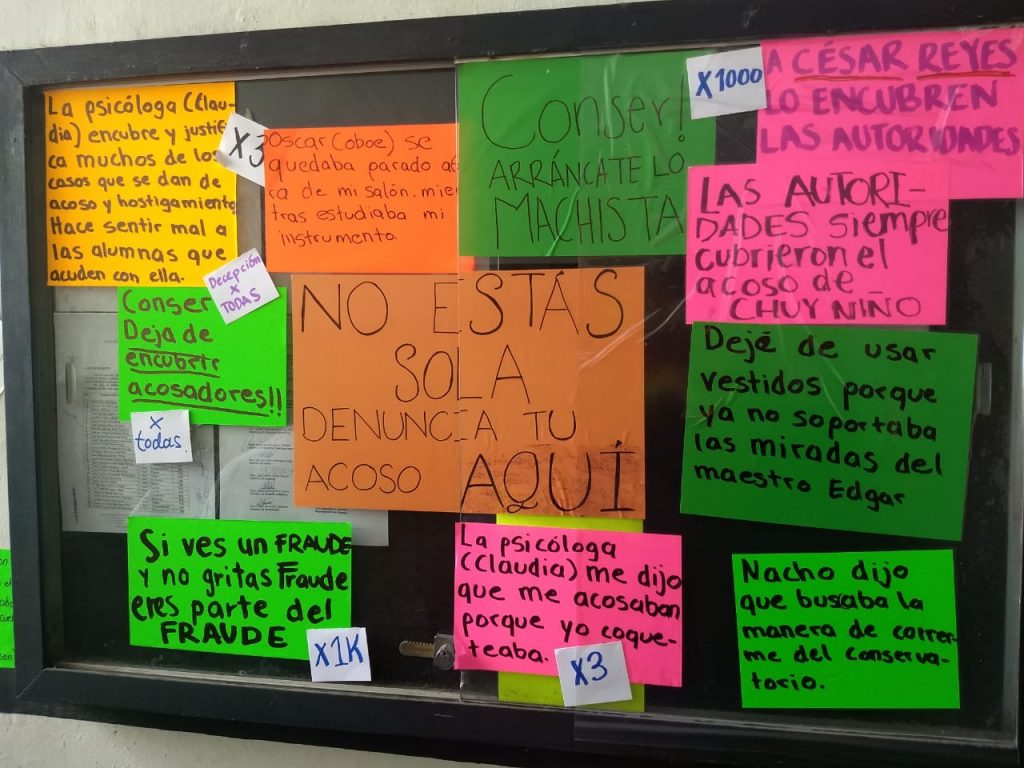 La psicóloga (Clau-
dia) encubre y justifi
ca muchos de los
casos que se dan de
acoso y hostigamiento
Hace sentir mal a
las alumnas que
acuden con ella.
X3
Oscar (oboe) se
quedaba parado a
ca de mi salón, mie
tras estudiaba mi
instrumento.
Conser!
ARRÁNCATE LO
MACHISTA
X1000
A CÉSAR REYES
LO ENCUBREN
LAS AUTORIDADES
LAS AUTORI-
DADES siempre
cubrieron el
acoso de
CHUY NIÑO
Decepción
x
TODAS
Conser
Deja de
encubrir
acosadores!!
x
todas.
NO ESTÁS
SOLA
DENUNCIA TU
ACOSO AQUÍ
Dejé de usar
vestidos porque
ya no soportaba
las miradas del
maestro Edgar
Si ves un FRAUDE
y no gritas Fraude
eres parte del
FRAUDE
X1K
La psicóloga
(Claudia) me dijo
que me acosaban
porque yo coque-
teaba.
X3
Nacho dijo
que buscaba la
manera de correr-
me del conserva-
torio.